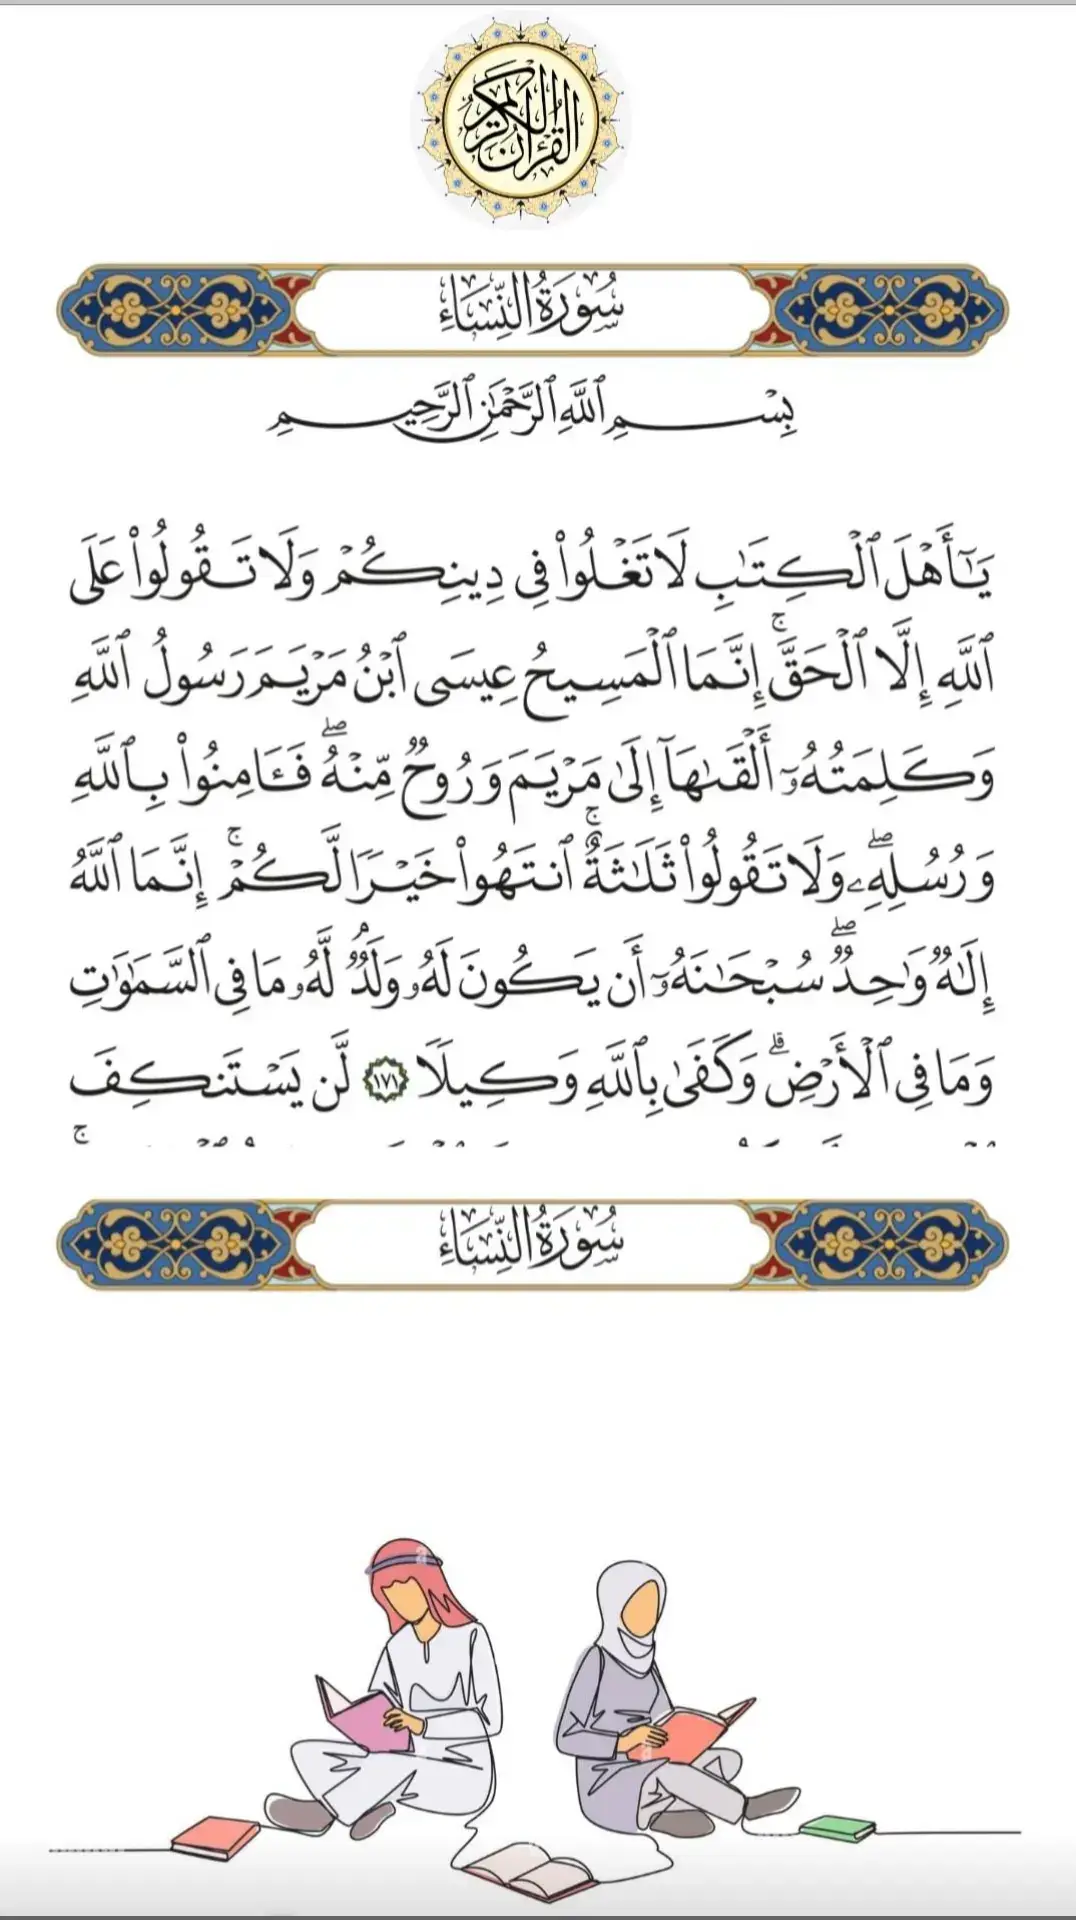 القرآن الكريم
سُورَةُ النِّسَاءِ
بِسْمِ ٱللَّهِ ٱلرَّحْمَٰنِ ٱلرَّحِيمِ
يَٰٓأَهْلَ ٱلْكِتَٰبِ لَا تَغْلُوا۟ فِى دِينِكُمْ وَلَا تَقُولُوا۟ عَلَى
ٱللَّهِ إِلَّا ٱلْحَقَّ ۚ إِنَّمَا ٱلْمَسِيحُ عِيسَى ٱبْنُ مَرْيَمَ رَسُولُ ٱللَّهِ
وَكَلِمَتُهُۥٓ أَلْقَىٰهَآ إِلَىٰ مَرْيَمَ وَرُوحٌ مِّنْهُ ۖ فَـَٔامِنُوا۟ بِٱللَّهِ
وَرُسُلِهِۦ ۖ وَلَا تَقُولُوا۟ ثَلَٰثَةٌ ۚ ٱنتَهُوا۟ خَيْرًا لَّكُمْ ۚ إِنَّمَا ٱللَّهُ
إِلَٰهٌ وَٰحِدٌ ۖ سُبْحَٰنَهُۥٓ أَن يَكُونَ لَهُۥ وَلَدٌ ۘ لَّهُۥ مَا فِى ٱلسَّمَٰوَٰتِ
وَمَا فِى ٱلْأَرْضِ ۗ وَكَفَىٰ بِٱللَّهِ وَكِيلًا ١٧١ لَّن يَسْتَنكِفَ
سُورَةُ النِّسَاءِ